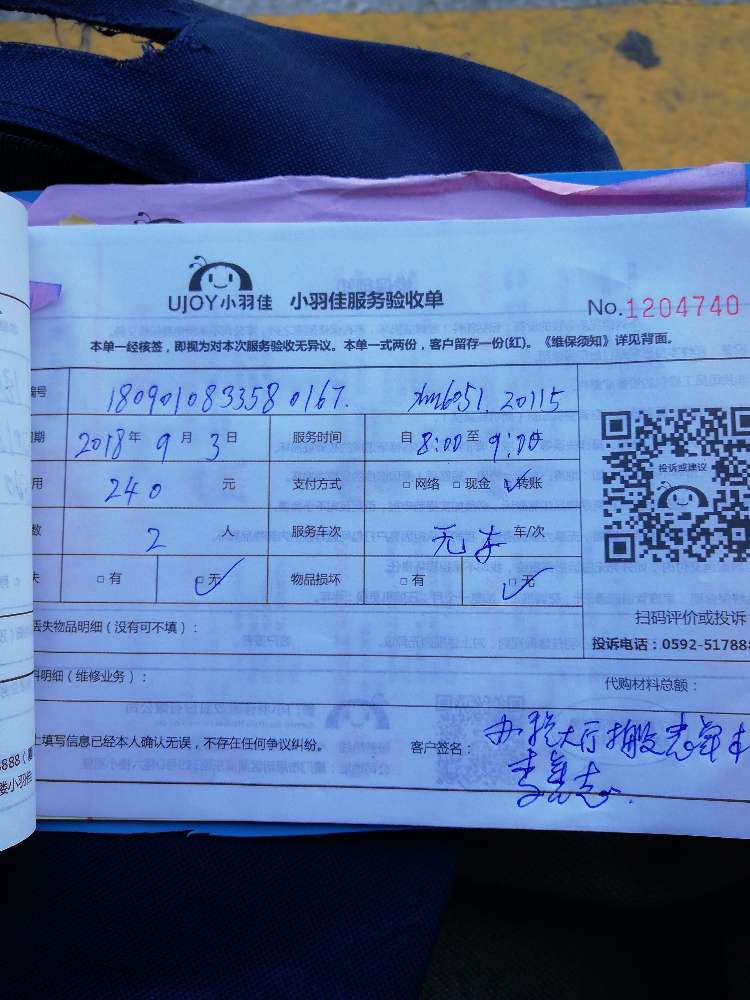 UJOY小羽佳 小羽佳服务验收单
No.1204740
本单一经核签，即视为对本次服务验收无异议。本单一式两份，客户留存一份(红)。《维保须知》详见背面。
编号 180901083358 0167. xm6051. 20115
期 2018年9月3日 服务时间 自8:00至9:00
用 240 元 支付方式 □网络 □现金 □转账
数 2 人 服务车次 无车 车/次
失 □有 □无 物品损坏 □有 □无
投诉或建议
扫码评价或投诉
丢失物品明细（没有可不填）：
投诉电话：0592-517888
料明细（维修业务）： 代购材料总额：
上填写信息已经本人确认无误，不存在任何争议纠纷。 客户签名： 办税大厅
8888（
娄小羽佳